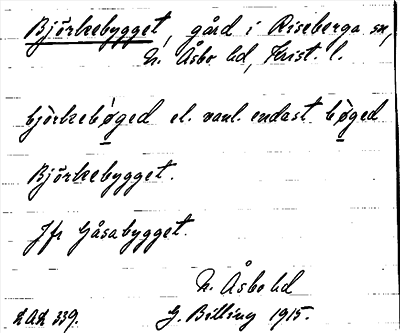 Björkebygget, gård i Riseberga sn,
N. Åsbo hd, Krist. l.
bjørkebøged el. vanl. endast bøged
Björkebygget.
Jfr Gåsabygget.
N. Åsbo hd
LAL 339. G. Billing 1915.